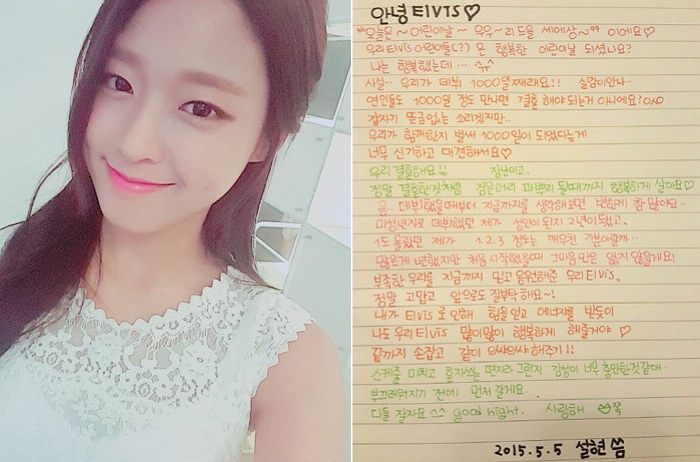 안녕 ElVIS♡
"오늘은~ 어린이날~ 우우~ 리드를 세에상~" 이에요♡
우리 ElVIS 어린이들(?) 은 행복한 어린이날 되셨나요?
나는 행복했는데… ^ㅠ^
사실.. 우리가 데뷔 1000일 째래요!! 실감이안나..
연인들도 1000일 정도 만나면 결혼 해야되는거 아니에요?
갑자기 뜬금없는 소리겠지만..
우리가 함께한지 벌써 1000일이 되었다는게
너무 신기하고 대견해서요♡
우리 결혼해요!! 장난이고..
정말 결혼한것처럼 검은머리 파뿌리 될때까지 행복하게 살아요♡
음 데뷔했을때부터 지금까지를 생각해보면 변한게 참 많아요..
미성년자로 데뷔했던 제가 성인이 된지 2년이 됐고,
1도 몰랐던 제가 1.2.3 정도는 깨우친 기분이랄까..
많은게 변했지만 처음 시작했을때 그 마음만은 잃지 않을게요!
부족한 우리를 지금까지 믿고 응원해준 우리 ElVIS,
정말 고맙고 앞으로도 잘부탁해요~!
내가 ElVIS 로 인해 힘을 얻고 에너지를 받듯이
나도 우리 ElVIS 많이많이 행복하게 해줄거야 ♡
끝까지 손잡고 같이 으쌰으쌰해주기!!
스케줄 마치고 혼자쓰는 편지라 그런지 감성이 너무 충만한것같애..
부끄러워지기 전에 먼저 갈게요.
다들 잘자요 ^^ good night. 사랑해 쪽
2015.5.5 설현 씀